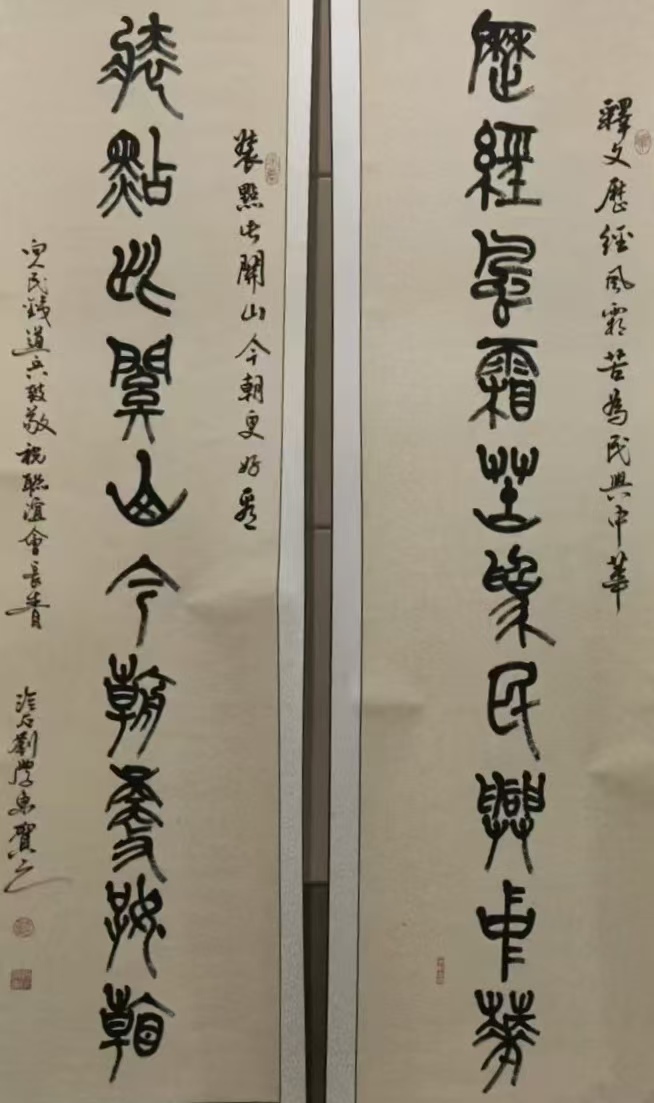 釋文歷經風霜苦為民興中華
歷經風霜苦為民興中華
裝點此關山今朝更好看
裝點此關山今朝更好看
民鐵道兵致敬祝聯誼會長青
劉學東賀之